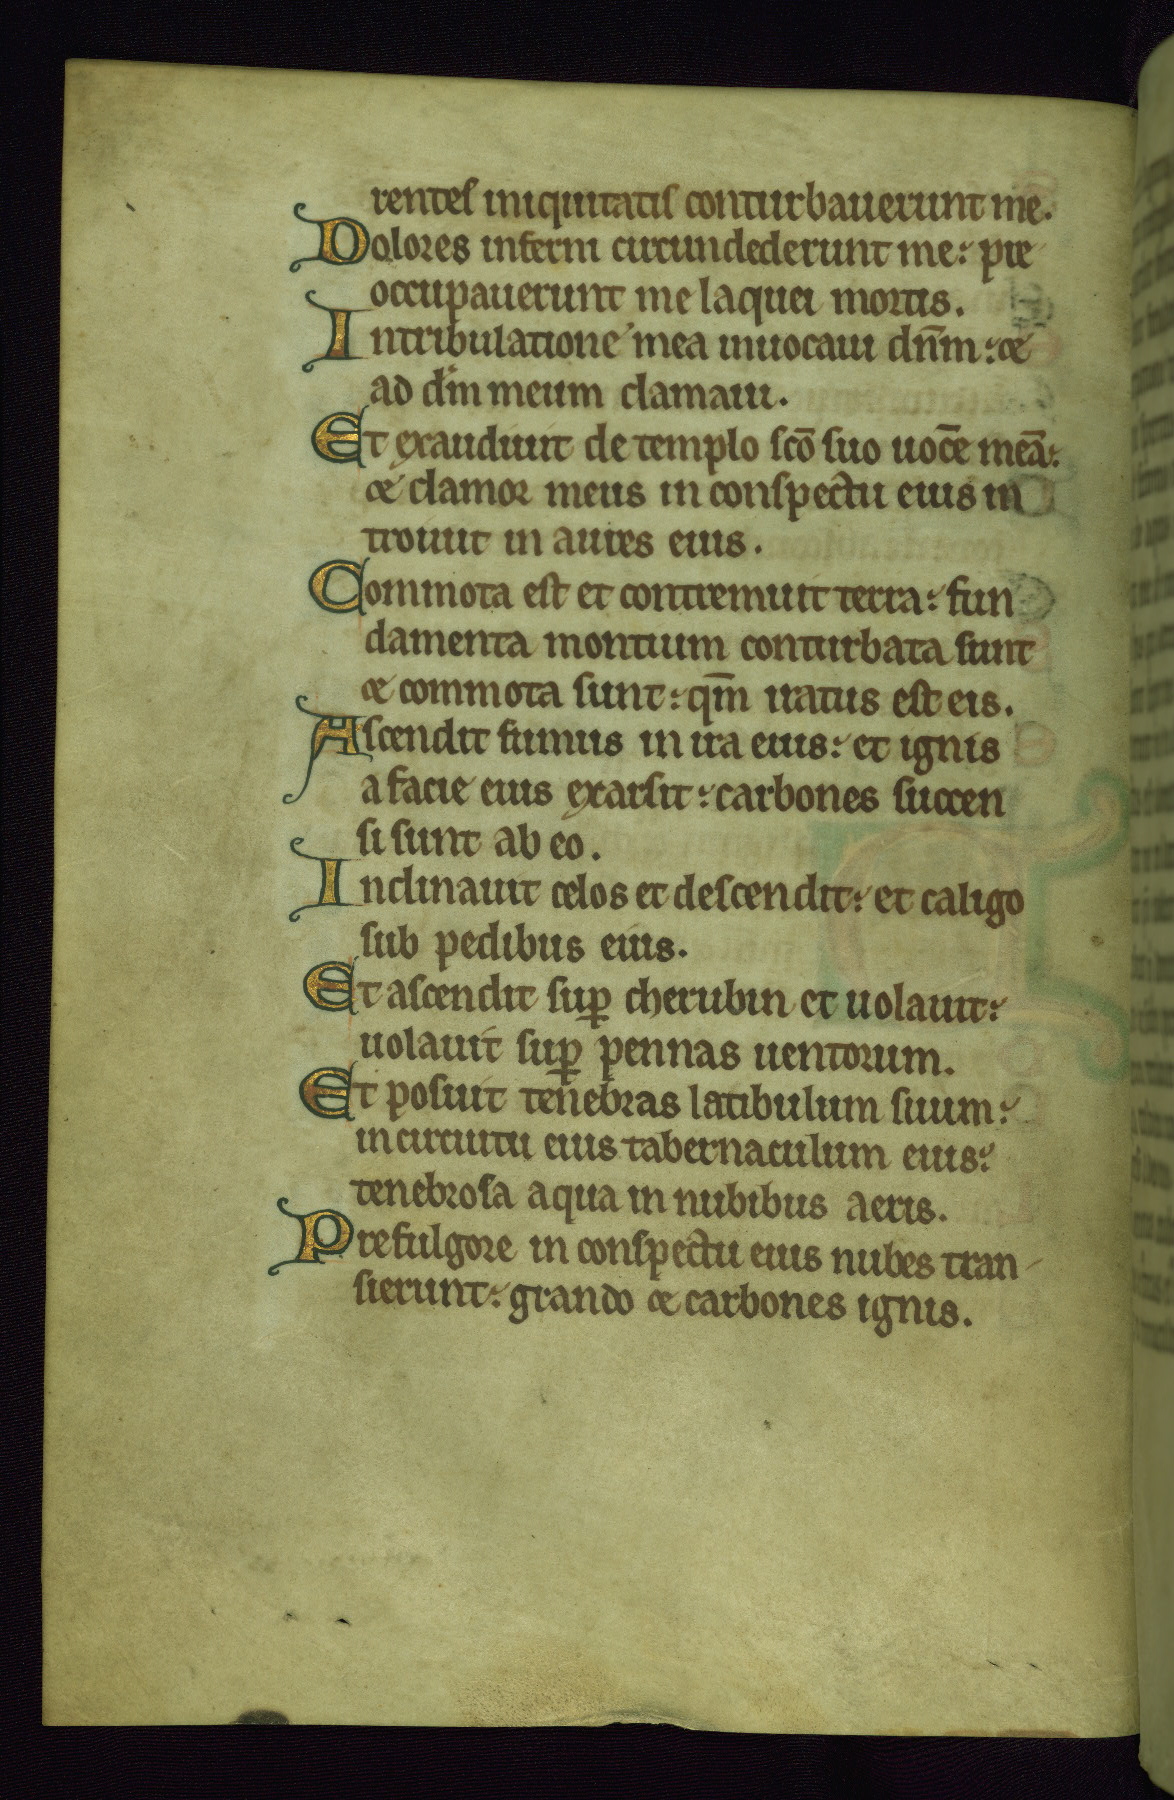 rentes iniquitatis conturbauerunt me.
Dolores inferni circundederunt me: pre
occupauerunt me laquei mortis.
In tribulatione mea inuocaui dn̄m: &
ad dm̄ meum clamaui.
Et exaudiuit de templo sc̄o suo uocē meā:
& clamor meus in conspectu eius in
troiuit in aures eius.
Commota est et contremuit terra: fun
damenta montium conturbata sunt
& commota sunt: qm̄ iratus est eis.
Ascendit fumus in ira eius: et ignis
a facie eius exarsit: carbones succen
si sunt ab eo.
Inclinauit celos et descendit: et caligo
sub pedibus eius.
Et ascendit suꝑ cherubin et uolauit:
uolauit suꝑ pennas uentorum.
Et posuit tenebras latibulum suum:
in circuitu eius tabernaculum eius:
tenebrosa aqua in nubibus aeris.
Prefulgore in conspectu eius nubes tran
sierunt: grando & carbones ignis.